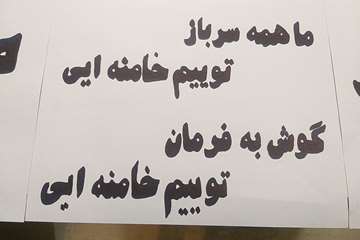 ما همه سرباز
توییم خامنه ایی
گوش به فرمان
توییم خامنه ایی